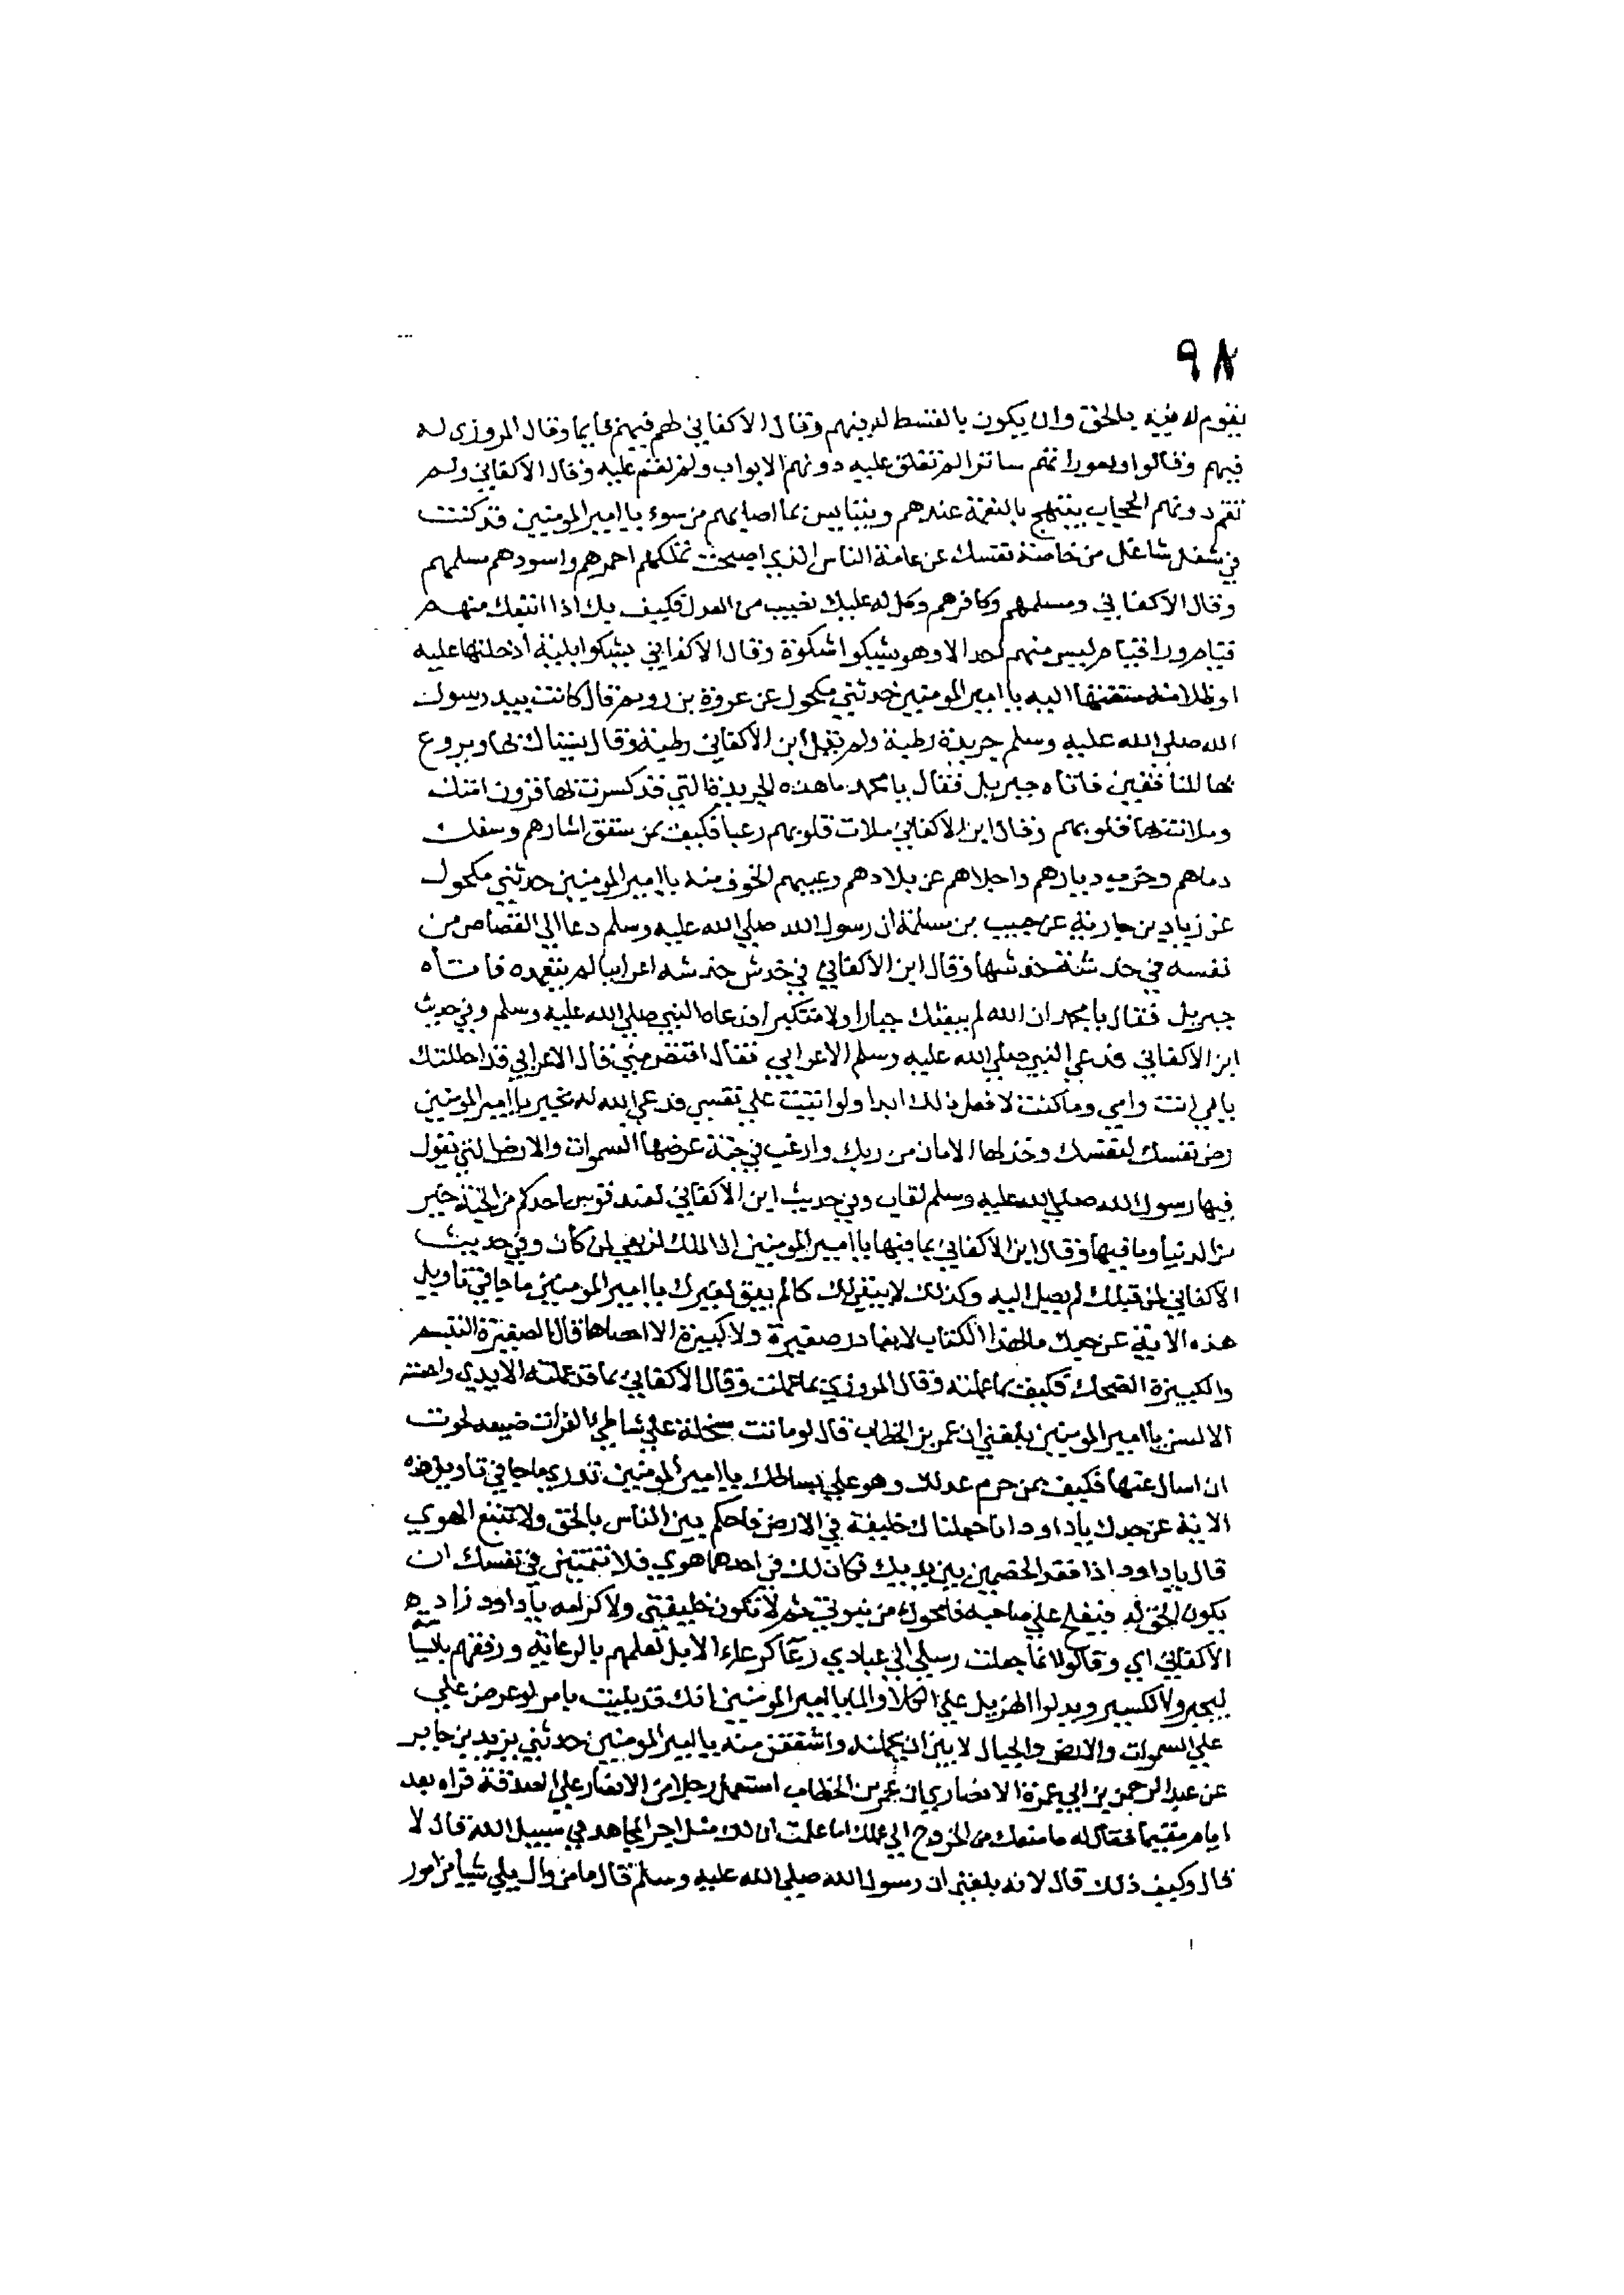 ٩٨
يقوم له فيه بالحق وان يكون بالقسط له بينهم وقال الاكفاني لهم فيهم قايما وقال المروزي له
فيهم وقالوا ولعوراتهم ساترا لم تغلق عليه دونهم الابواب ولم يقم عليه وقال الاكفاني ولم
تقم دونهم الحجاب يبتهج بالنعمة عندهم ويبتايس بما اصابهم من سوء يا امير المومنين قد كنت
في شغل شاغل من خاصة نفسك عن عامة الناس الذي اصبحت تملكهم احمرهم واسودهم مسلمهم
وقال الاكفاني ومسلمهم وكافرهم وكل له عليك نصيب من العدل فكيف بك اذا اتبعك منهم
فيام ورا فيام ليس منهم احد الا وهو يشكوا شكوة وقال الاكفاني يشكوا بلية ادخلتها عليه
او ظلامة سقتها اليه يا امير المومنين حدثني مكحول عن عروة بن رويم قال كانت بيد رسول
الله صلى الله عليه وسلم جريدة رطبة ولم يقل ابن الاكفاني رطبة وقال يستاك بها ويروع
بها المنافقين فاتاه جبريل فقال يا محمد ما هذه الجريدة التي قد كسرت بها قرون امتك
وملات بها قلوبهم وقال ابن الاكفاني ملات قلوبهم رعبا فكيف بمن شقق ابشارهم وسفك
دماهم وخرب ديارهم واجلاهم عن بلادهم وغيبهم الخوف منه يا امير المومنين حدثني مكحول
عن زياد بن جارية عن حبيب بن مسلمة ان رسول الله صلى الله عليه وسلم دعا الي القصاص من
نفسه في خدشة خدشها وقال ابن الاكفاني في خدش خدشه اعرابيا لم يتعمده فاتاه
جبريل فقال يا محمد ان الله لم يبعثك جبارا ولا متكبرا فدعاه النبي صلى الله عليه وسلم وفي حديث
ابن الاكفاني فدعي النبي صلى الله عليه وسلم الاعرابي فقال اقتص مني فقال الاعرابي قد احللتك
بابي انت وامي وما كنت لافعل ذلك ابدا ولو اتيت علي نفسي فدعي الله له بخير يا امير المومنين
رض نفسك لنفسك وخذ لها الامان من ربك وارغب في جنة عرضها السموات والارض التي يقول
فيها رسول الله صلى الله عليه وسلم لقاب وفي حديث ابن الاكفاني لقيد قوس احدكم من الجنة خير
من الدنيا وما فيها وقال ابن الاكفاني بما فيها يا امير المومنين ان الملك لو بقي لمن كان وفي حديث
الاكفاني لمن قبلك لم يصل اليه وكذلك لا يبقي لك كما لم يبق لغيرك يا امير المومنين ما جا في تاويل
هذه الاية عن جدك مال هذا الكتاب لا يغادر صغيرة ولا كبيرة الا احصاها قال الصغيرة التبسم
والكبيرة الضحك فكيف بما عملته وقال المروزي بما عملت وقال الاكفاني بما قد عملته الايدي واحصته
الالسن يا امير المومنين بلغني ان عمر بن الخطاب قال لو ماتت سخلة علي شاطئ الفرات ضيعة لخفت
ان اسال عنها فكيف بمن حرم عدلك وهو علي بساطك يا امير المومنين تدري ما جا في تاويل هذه
الاية عن جدك يا داود انا جعلناك خليفة في الارض فاحكم بين الناس بالحق ولا تتبع الهوي
قال يا داود اذا قعد الخصمين بين يديك فكان لك في احدهما هوي فلا تتمنين في نفسك ان
يكون الحق له فيفلح علي صاحبه فامحوك من نبوتي ثم لا تكون خليفتي ولا كرامة يا داود زاد
الاكفاني اي وقالوا انما جعلت رسلي الي عبادي رعا كرعاء الابل لعلمهم بالرعاية ورفقهم بالسياسة
ليجبروا الكسير ويدلوا الهزيل علي الكلا والما يا امير المومنين انك قد بليت بامر لو عرض علي
علي السموات والارض والجبال لابين ان يحملنه واشفقن منه يا امير المومنين حدثني يزيد بن جابر
عن عبد الرحمن بن ابي عمرة الانصاري ان عمر بن الخطاب استعمل رجلا من الانصار علي الصدقة فراه بعد
ايام مقيما فقال له ما منعك من الخروج الي عملك اما علمت ان لك مثل اجر المجاهد في سبيل الله قال لا
قال وكيف ذلك قال لانه بلغني ان رسول الله صلى الله عليه وسلم قال ما من وال يلي شيا من امور